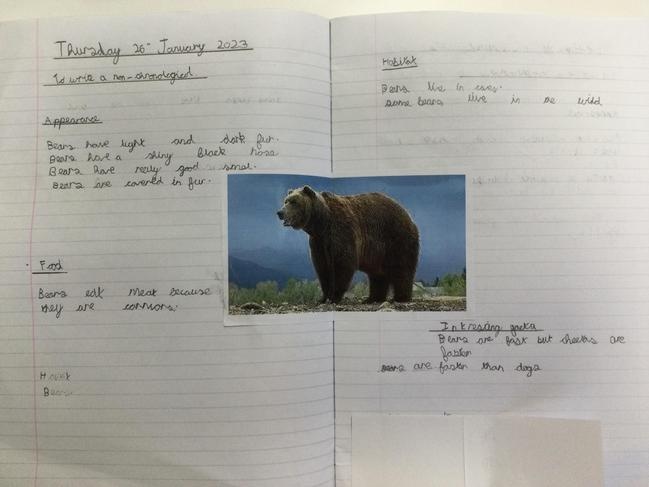 Thursday 26th January 2023
To write a non-chronological
Appearance
Bears have light and dark fur.
Bears have a shiny black nose
Bears have really good smel.
Bears are covered in fur.
Food
Bears eat meat because
they are
Bears
Habitat
Bears live in caves.
some bears live in the wild
Intresing facts
Bears are fast but cheetas are
faster
Bears are faster than dogs